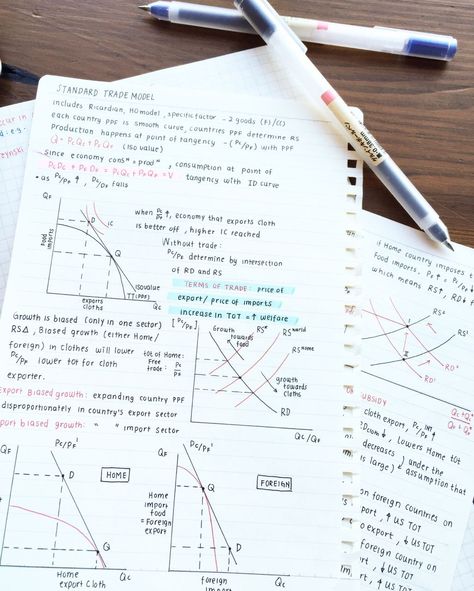 STANDARD TRADE MODEL
includes Ricardian, HO model, specific factor - 2 goods (F)/(C)
each country PPF is smooth curve, countries PPF determine RS
Production happens at point of tangency - (Pc/Pf) with PPF
Q - PcQc + PFQF (isovalue)
since economy consⁿ = prodⁿ, consumption at point of
PcDc + PFDF = PcQc + PFQF = V tangency with ID curve
• as Pc/PF ↑, PF/Pc falls
QF
Food imports
D
IC
Q
isovalue
TT(PPF)
exports cloths
Qc
when Pc/PF ↑, economy that exports cloth
is better off, higher IC reached
Without trade:
Pc/PF determine by intersection
of RD and RS
TERMS OF TRADE: price of
export/ price of imports
increase in TOT = ↑ welfare
Growth is biased (only in one sector)
RS∆, Biased growth (either Home/
foreign) in clothes will lower
Pc/PF lower tot for cloth
exporter.
tot of Home:
Free trade: Pc/PF
[Pc/PF]
Growth towards food
RS*
RS world
RS Home
growth towards cloths
RD
Qc/QF
Export Biased growth: expanding country PPF
disproportionately in country's export sector
import biased growth: " " import sector
QF
Pc/PF'
D
HOME
Q
Home export cloth
Qc
Home import food = Foreign export
QF
Pc/PF'
Q
FOREIGN
D
foreign import
Qc
0.38mm
if Home country imposes
Food imports, PF ↑
which means RS↑, RD↓
1
2
RD¹
RD²
SUBSIDY
Qc + Qc*
QF + QF*
cloth export, Pc/PF INT ↑
Dcom ↓, Lowers Home tot
decreases) under the
is large) assumption that
on foreign countries on
port, ↑ US TOT
o export, ↓ US TOT
foreign country on
port, ↓ US TOT
import, ↑ US TOT